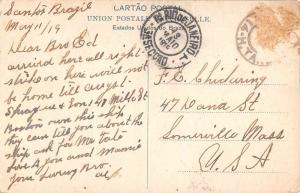 CARTÃO POSTAL
UNION POSTALE
Estados Unidos do
Santos Brazil
May 11/19
Dear Bro Ed
arrived here all right
strike on here will not
be home till Augst.
Sprague & Son 40 St
Boston own this ship
they can tell you about the
ship ask for Mr
Love to you and Mamie
your loving Bro
RIO DE JANEIRO
F.C. Chickering
47 Dana St
Somerville Mass
U.S.A